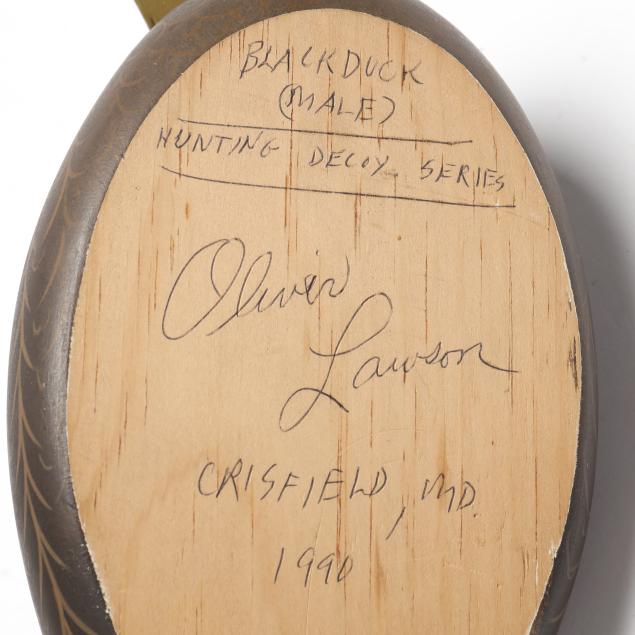 BLACKDUCK
(MALE)
HUNTING DECOY SERIES
Oliver
Lawson
CRISFIELD, MD.
1990